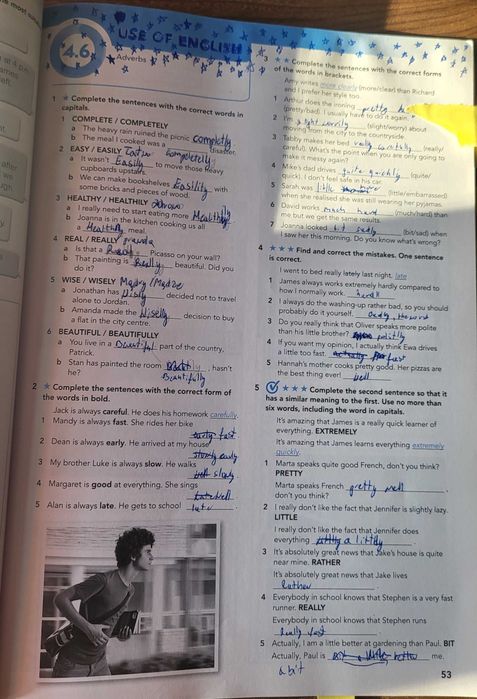 4.6
USE OF ENGLISH
Adverbs
1 ★ Complete the sentences with the correct words in
capitals.
1 COMPLETE / COMPLETELY
a The heavy rain ruined the picnic completly.
b The meal I cooked was a disaster.
2 EASY / EASILY
completely
a It wasn't Easily to move those heavy
cupboards upstairs.
b We can make bookshelves with
some bricks and pieces of wood.
3 HEALTHY / HEALTHILY
a I really need to start eating more
b Joanna is in the kitchen cooking us all
a meal.
4 REAL / REALLY
a Is that a Picasso on your wall?
b That painting is Really beautiful. Did you
do it?
5 WISE / WISELY
a Jonathan has decided not to travel
alone to Jordan.
b Amanda made the Wiselly decision to buy
a flat in the city centre.
6 BEAUTIFUL / BEAUTIFULLY
a You live in a part of the country,
Patrick.
b Stan has painted the room , hasn't
he?
2 ★ Complete the sentences with the correct form of
the words in bold.
Jack is always careful. He does his homework carefully.
1 Mandy is always fast. She rides her bike
fast
2 Dean is always early. He arrived at my house
early
3 My brother Luke is always slow. He walks
4 Margaret is good at everything. She sings
well
5 Alan is always late. He gets to school late
3 ★★ Complete the sentences with the correct forms
of the words in brackets.
Amy writes more clearly (more/clear) than Richard
and I prefer her style too.
1 Arthur does the ironing pretty
(pretty/bad). I usually have to do it again.
2 I'm (slight/worry) about
moving from the city to the countryside.
3 Tabby makes her bed (really/
careful). What's the point when you are only going to
make it messy again?
4 Mike's dad drives quite quickly (quite/
quick). I don't feel safe in his car.
5 Sarah was little (little/embarrassed)
when she realised she was still wearing her pyjamas.
6 David works much hard (much/hard) than
me but we get the same results.
7 Joanna looked bit sadly (bit/sad) when
I saw her this morning. Do you know what's wrong?
4 ★★★ Find and correct the mistakes. One sentence
is correct.
I went to bed really lately last night. late
1 James always works extremely hardly compared to
how I normally work.
2 I always do the washing-up rather bad, so you should
probably do it yourself.
3 Do you really think that Oliver speaks more polite
than his little brother? politlly
4 If you want my opinion, I actually think Ewa drives
a little too fast. fast
5 Hannah's mother cooks pretty good. Her pizzas are
the best thing ever! well
5 ★★★ Complete the second sentence so that it
has a similar meaning to the first. Use no more than
six words, including the word in capitals.
It's amazing that James is a really quick learner of
everything. EXTREMELY
It's amazing that James learns everything extremely
quickly.
1 Marta speaks quite good French, don't you think?
PRETTY
Marta speaks French pretty well,
don't you think?
2 I really don't like the fact that Jennifer is slightly lazy.
LITTLE
I really don't like the fact that Jennifer does
everything a littlly
3 It's absolutely great news that Jake's house is quite
near mine. RATHER
It's absolutely great news that Jake lives
Rather
4 Everybody in school knows that Stephen is a very fast
runner. REALLY
Everybody in school knows that Stephen runs
Really fast
5 Actually, I am a little better at gardening than Paul. BIT
Actually, Paul is better me.
a bit
53